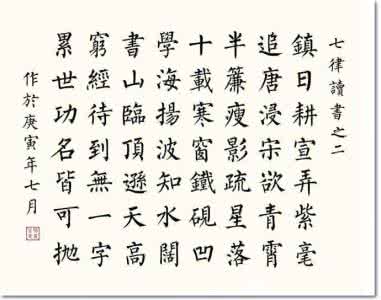 七律讀書之二
鎮日耕宣弄紫毫
追唐浸宋欲青霄
半簾瘦影疏星落
十載寒窗鐵硯凹
學海揚波知水闊
書山臨頂遜天高
窮經待到無一字
累世功名皆可拋
作於庚寅年七月